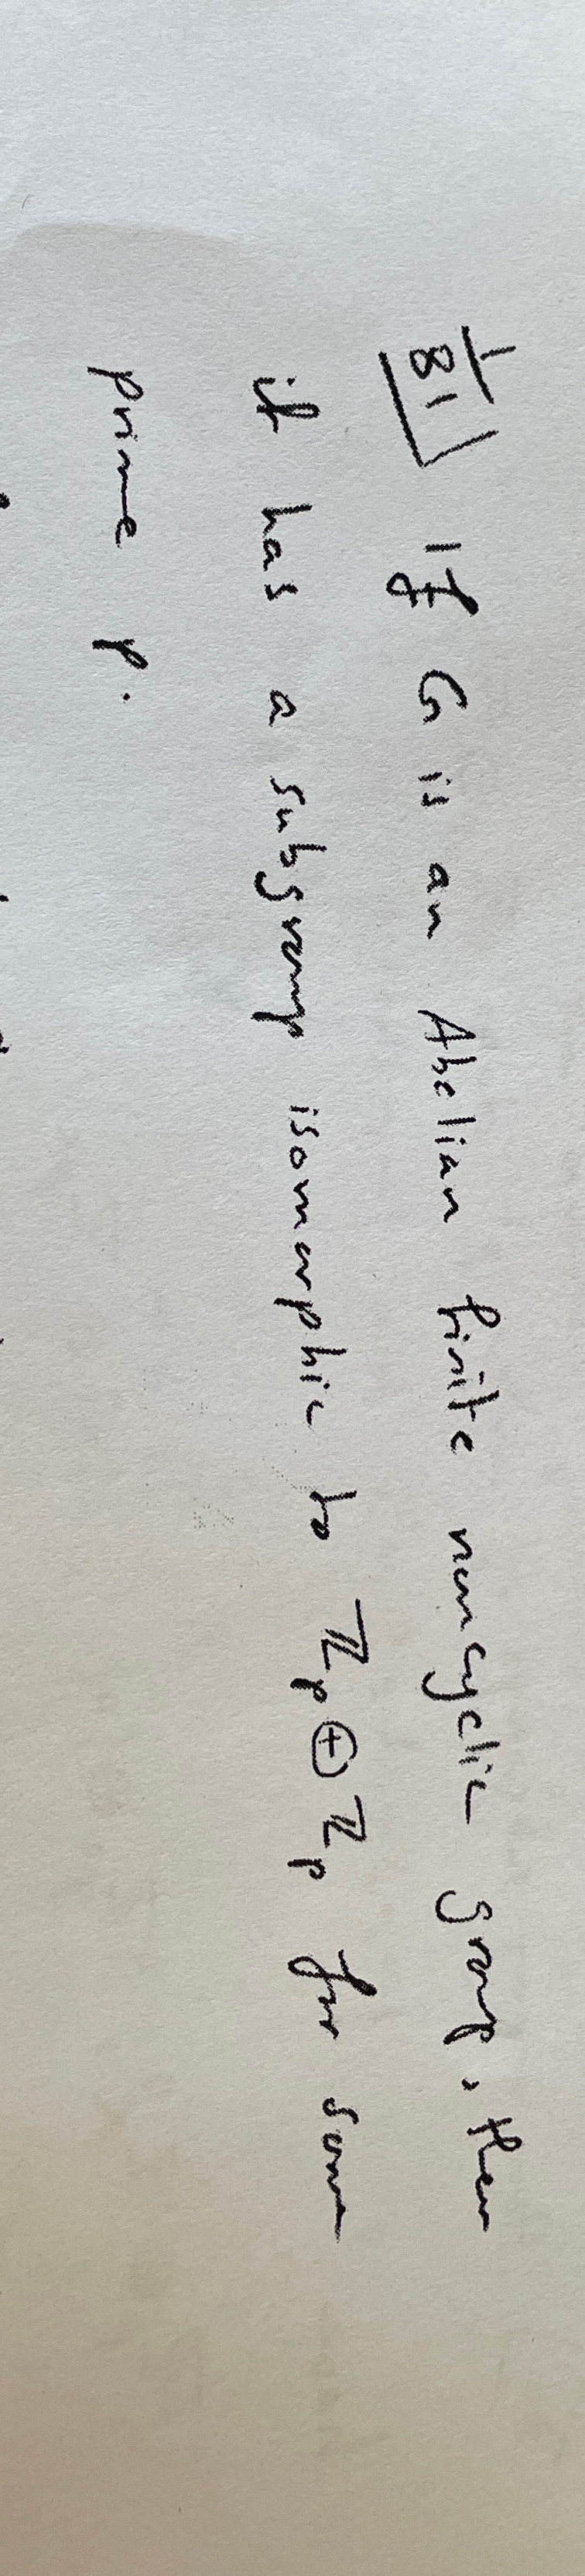 181 If G is an Abelian finite noncyclic group, then
it has a subgroup isomorphic to ℤₚ ⊕ ℤₚ for some
prime p.